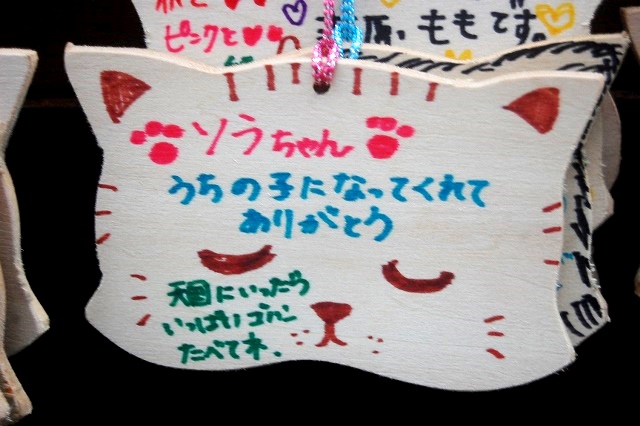 ピンクと
原、ももです。
ソラちゃん
うちの子になってくれて
ありがとう
天国にいったら
いっぱいゴハン
たべてネ.